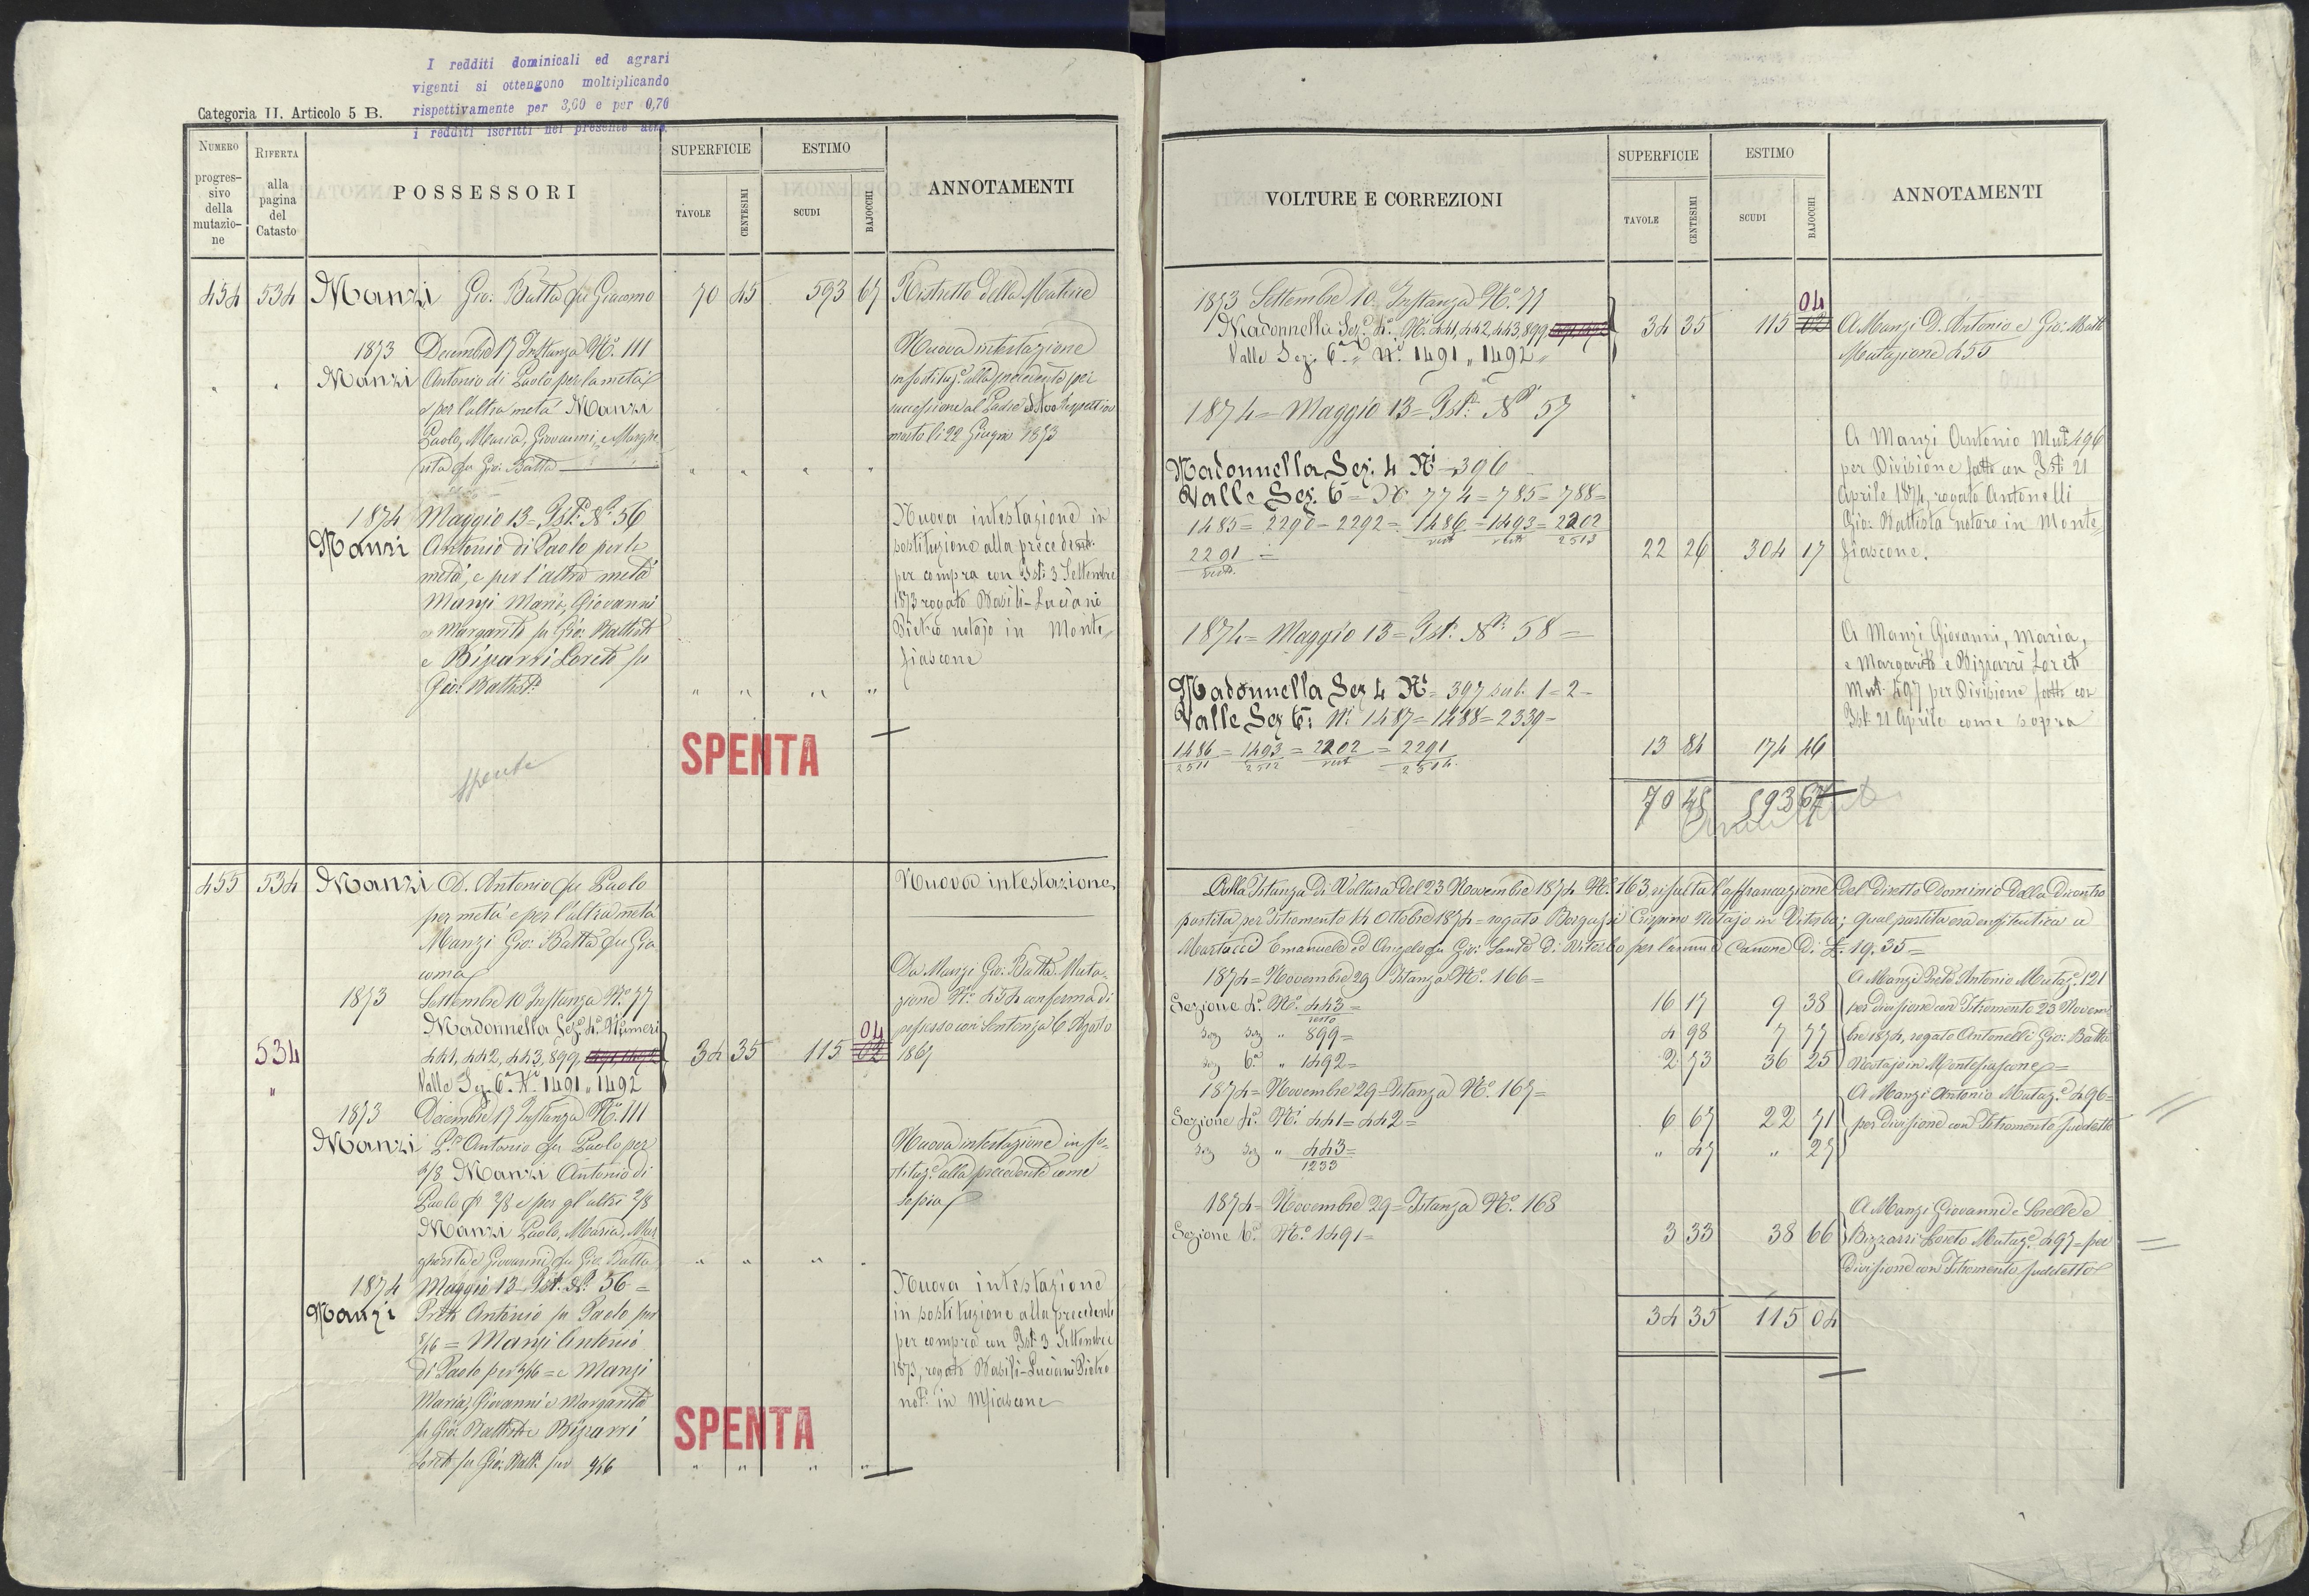 I redditi dominicali ed agrari
vigenti si ottengono moltiplicando
rispettivamente per 3,60 e per 0,70
i redditi iscritti nel presente atto.
Categoria II. Articolo 5 B.
NUMERO progressivo della mutazione
RIFERTA alla pagina del Catasto
POSSESSORI
SUPERFICIE
TAVOLE
CENTESIMI
ESTIMO
SCUDI
BAJOCCHI
ANNOTAMENTI
454 534 Manzi Gio: Batta fu Giacomo 70 45 593 67 Ristretto della Matrice
1873 Decembre 17 Instanza N.º 111
Manzi Antonio di Paolo per la metà
e per l'altra metà Manzi
Paolo, Maria, Giovanni, e Marghe
rita fu Gio: Batta
Nuova intestazione
in sostituz.e alla precedente per
successione al Padre
morto li 22 Giugno 1873
1874 Maggio 13 = Ist.a N.º 56
Manzi Antonio di Paolo per la
metà, e per l'altra metà
Manzi Maria, Giovanni
e Margarita fu Gio: Battista
e Bizzarri Loreto fu
Gio: Battist.a
Nuova intestazione in
sostituzione alla precedente
per compra con Ist: 3 Settembre
1873 rogato Basili-Luciani
Pietro notajo in Monte,
fiascone
SPENTA
spenta
455 534 Manzi D. Antonio fu Paolo
per metà e per l'altra metà
Manzi Gio: Batta fu Gia
como
Nuova intestazione
1873 Settembre 10 Instanza N.º 77
Madonnella Sez.e 4.a Numeri
534 441, 442, 443, 899, 34 35 115 02 04
" Valle Sez. 6.a N.i 1491 " 1492
Da Manzi Gio: Batta Muta-
zione N.º 454 conferma di
possesso con Sentenza 6 Agosto
1867
1873 Decembre 17 Instanza N.º 111
Manzi D. Antonio fu Paolo per
4/8 Manzi Antonio di
Paolo p 2/8 e per gl'altri 2/8
Manzi Paolo, Maria, Mar
gherita e Giovanni fu Gio: Batta
Nuova intestazione in so-
stituz.e alla precedente come
sopra
1874 Maggio 13 Ist. N.º 56 =
Manzi Prete Antonio fu Paolo per
8/16 = Manzi Antonio
di Paolo per 4/16 = e Manzi
Maria, Giovanni e Margarita
fu Gio: Battista e Bizzarri
Loreto fu Gio: Batt. per 4/16
Nuova intestazione
in sostituzione alla precedente
per compra con Ist: 3 Settembre
1873, rogato Basili-Luciani Pietro
not.o in Mfiascone
SPENTA
VOLTURE E CORREZIONI
SUPERFICIE
TAVOLE
CENTESIMI
ESTIMO
SCUDI
BAJOCCHI
ANNOTAMENTI
1873 Settembre 10 Instanza N.º 77
Madonnella Sez.e 4.a N.i 441, 442, 443, 899, 34 35 115 02 04
Valle Sez. 6.a N.i 1491 " 1492 "
A Manzi D. Antonio e Gio: Batta
Mutazione 455
1874 = Maggio 13 = Ist.a N.º 57
Madonnella Sez. 4 N.i 396
Valle Sez. 6 = N. 774 = 785 = 788 =
1485 = 2290 = 2292 = 1486 = 1493 = 2202
rest rest 2513
2291 = 22 26 304 17
resto
A Manzi Antonio Mut.e 496
per Divisione fatta con Ist: 21
Aprile 1874, rogato Antonelli
Gio: Battista notaro in Monte,
fiascone.
1874 = Maggio 13 = Ist. N.º 58 =
Madonnella Sez 4 N.i = 397 sub. 1 = 2 =
Valle Sez 6: N.i 1487 = 1488 = 2339 =
1486 = 1493 = 2202 = 2291 13 84 174 46
2511 2512 rest 2514
A Manzi Giovanni, Maria,
e Margarita e Bizzarri Loreto
Mut. 497 per Divisione fatta con
Ist: 21 Aprile come sopra
70 45 593 67
Dalla Istanza di Voltura del 23 Novembre 1874 N.º 163, risulta l'affrancazione del diretto Dominio della dicontro
partita per Istromento 14 Ottobre 1874 = rogato Borgassi Crispino Notajo in Viterbo; qual partita era enfiteutica a
Martucci Emanuele ed Angelo fu Gio: Sante di Viterbo per l'annuo Canone di £. 19.35 =
1874 = Novembre 29 Istanza N.º 166 =
Sezione 4.a N.º 443 = 16 17 9 38
resto
" 899 = 4 98 7 77
6.a " 1492 = 2 73 36 25
A Manzi Prete Antonio Mutaz.e 121
per divisione con Istromento 23 Novem
bre 1874, rogato Antonelli Gio: Batta
Notajo in Montefiascone =
1874 = Novembre 29 = Istanza N.º 167 =
Sezione 4.a N.i 441 = 442 = 6 67 22 71
" 443 = " 47 " 27
1233
A Manzi Antonio Mutaz.e 496 =
per divisione con Istromento suddetto
1874 = Novembre 29 = Istanza N.º 168
Sezione 6.a N.º 1491 = 3 33 38 66
A Manzi Giovanni e Sorelle e
Bizzarri Loreto Mutaz.e 497 = per
divisione con Istromento suddetto
34 35 115 04